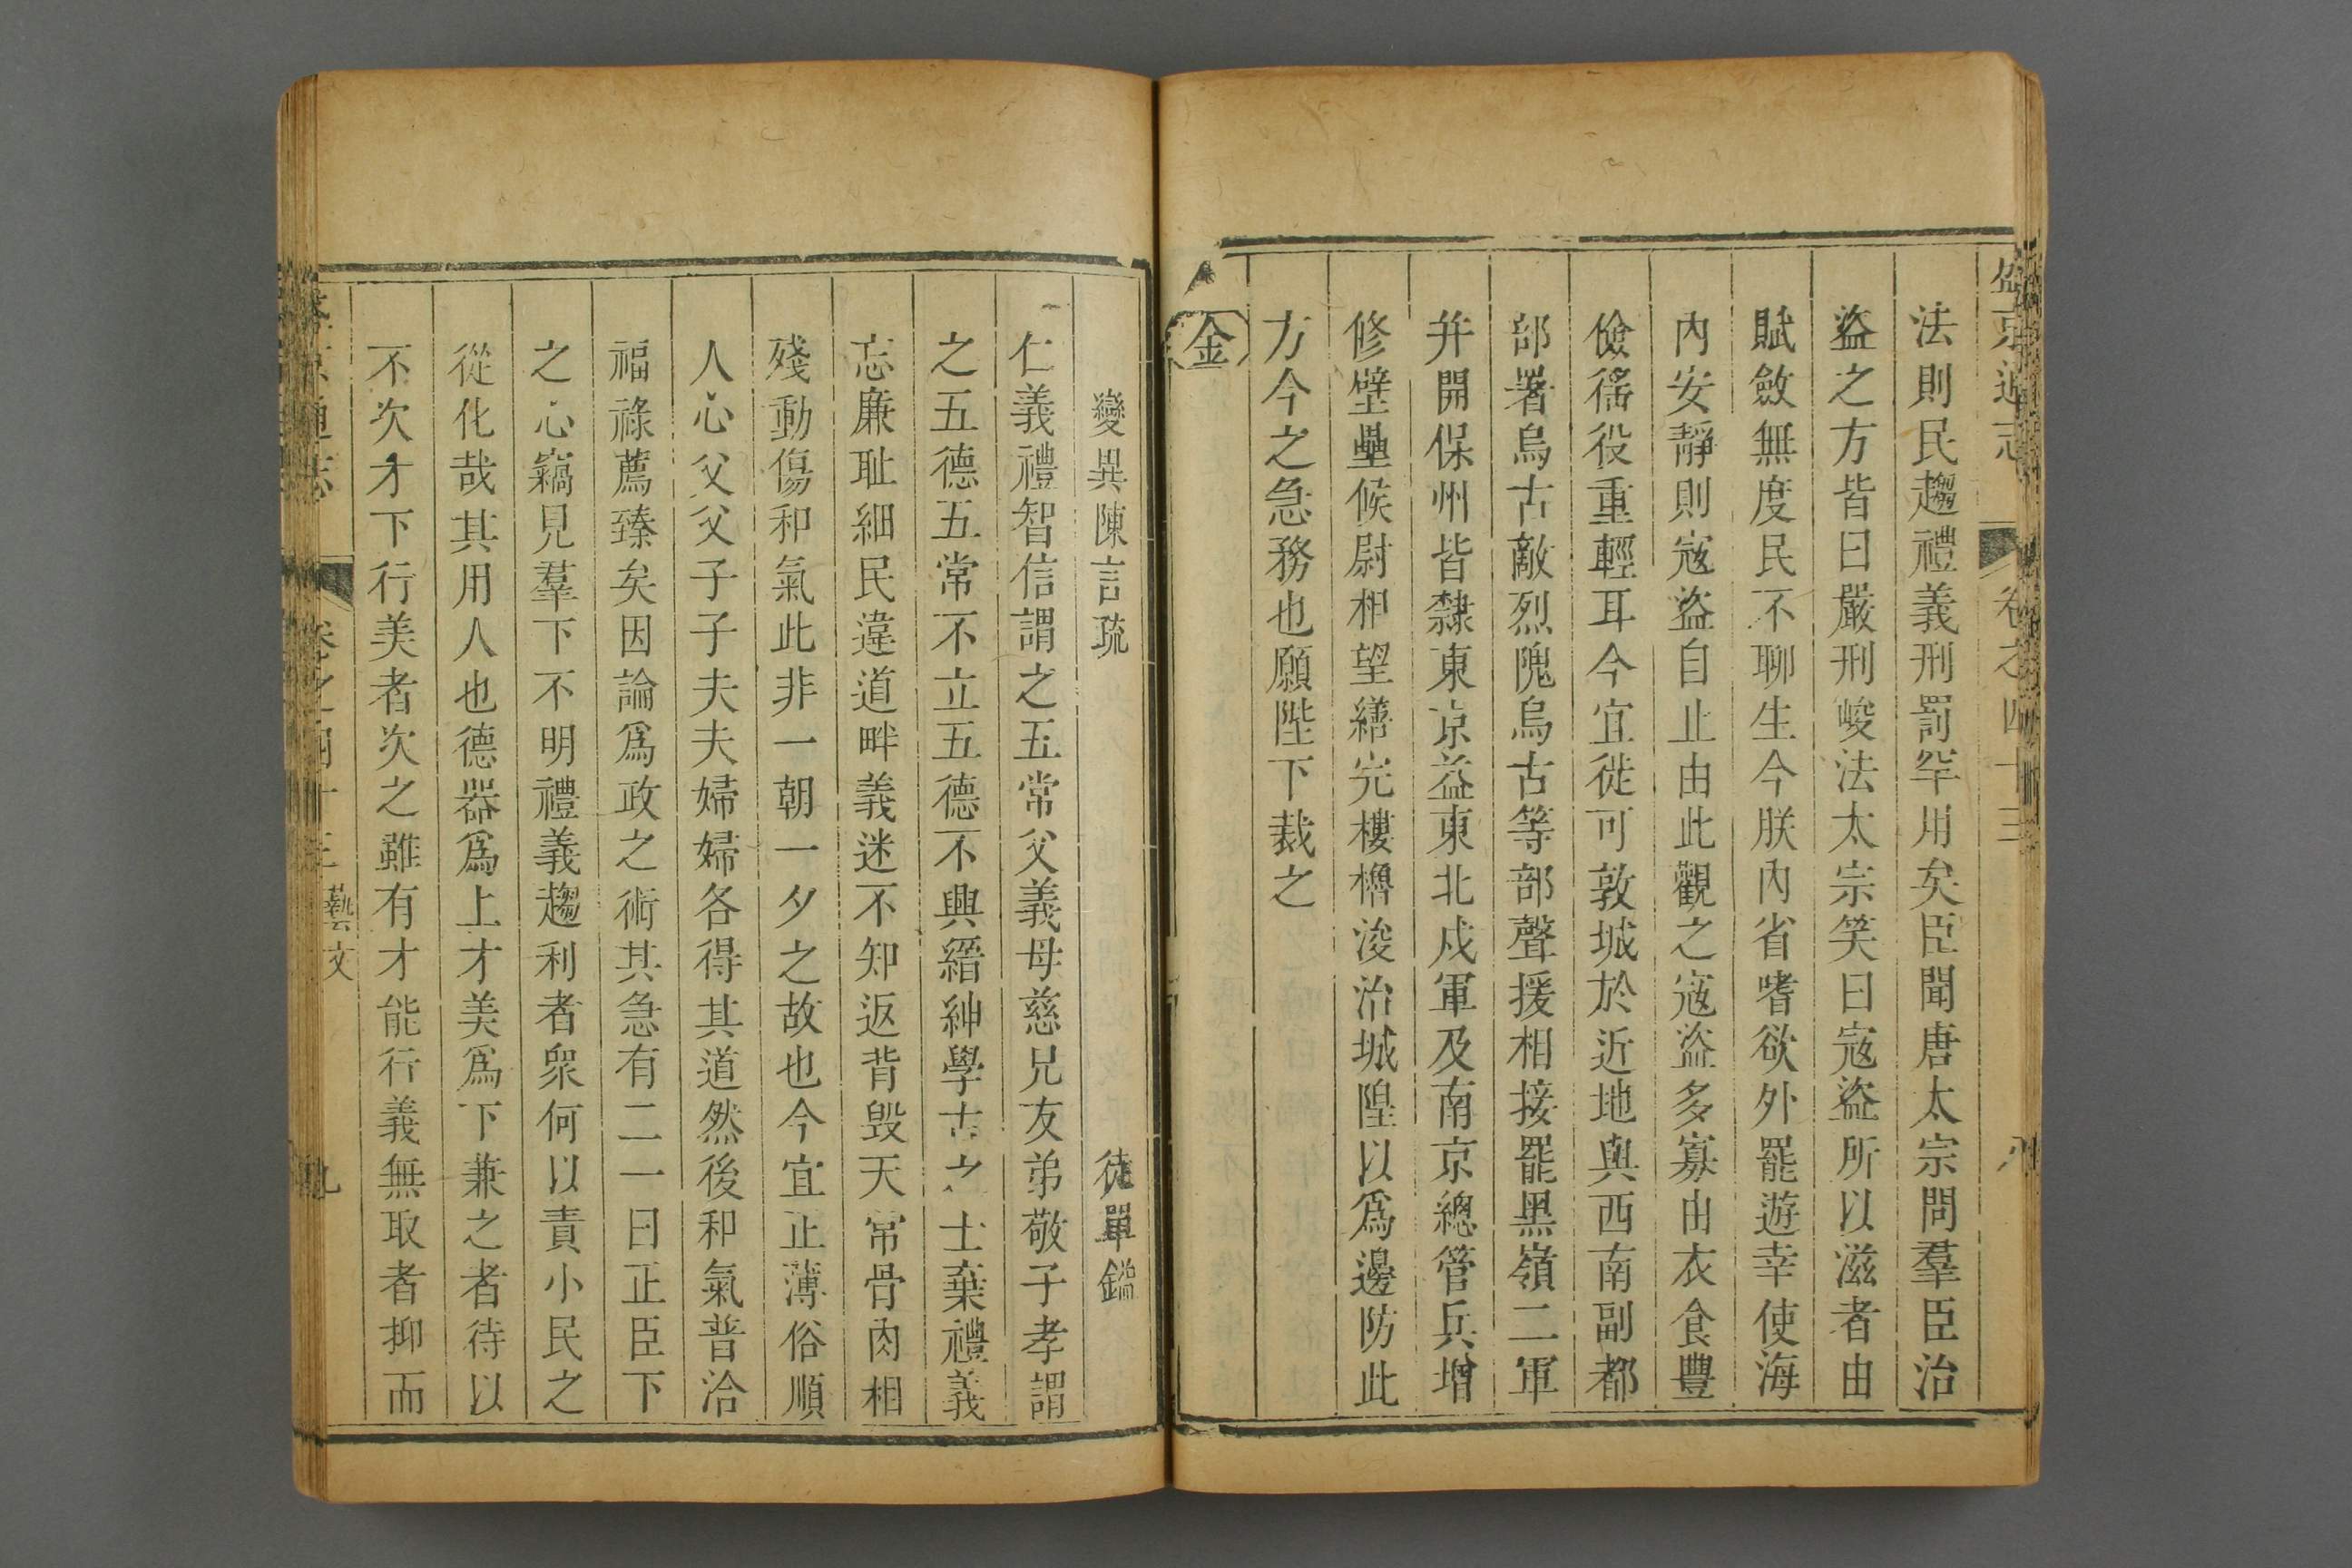 盛京通志 卷之四十三 八
法則民趨禮義刑罰罕用矣臣聞唐太宗問羣臣治
盜之方皆曰嚴刑峻法太宗笑曰寇盜所以滋者由
賦斂無度民不聊生今朕內省嗜欲外罷遊幸使海
內安靜則寇盜自止由此觀之寇盜多寡由衣食豐
儉徭役重輕耳今宜徙可敦城於近地與西南副都
部署烏古敵烈隗烏古等部聲援相接罷黑嶺二軍
幷開保州皆隸東京益東北戍軍及南京總管兵增
修壁壘候尉相望繕完樓櫓浚治城隍以爲邊防此
方今之急務也願陛下裁之
金
變異陳言疏 徒單鎰
仁義禮智信謂之五常父義母慈兄友弟敬子孝謂
之五德五常不立五德不興縉紳學古之士棄禮義
忘廉耻細民違道畔義迷不知返背毀天常骨肉相
殘動傷和氣此非一朝一夕之故也今宜正薄俗順
人心父父子子夫夫婦婦各得其道然後和氣普洽
福祿薦臻矣因論爲政之術其急有二一曰正臣下
之心竊見羣下不明禮義趨利者衆何以責小民之
從化哉其用人也德器爲上才美爲下兼之者待以
不次才下行美者次之雖有才能行義無取者抑而
盛京通志 卷之四十三 藝文 九